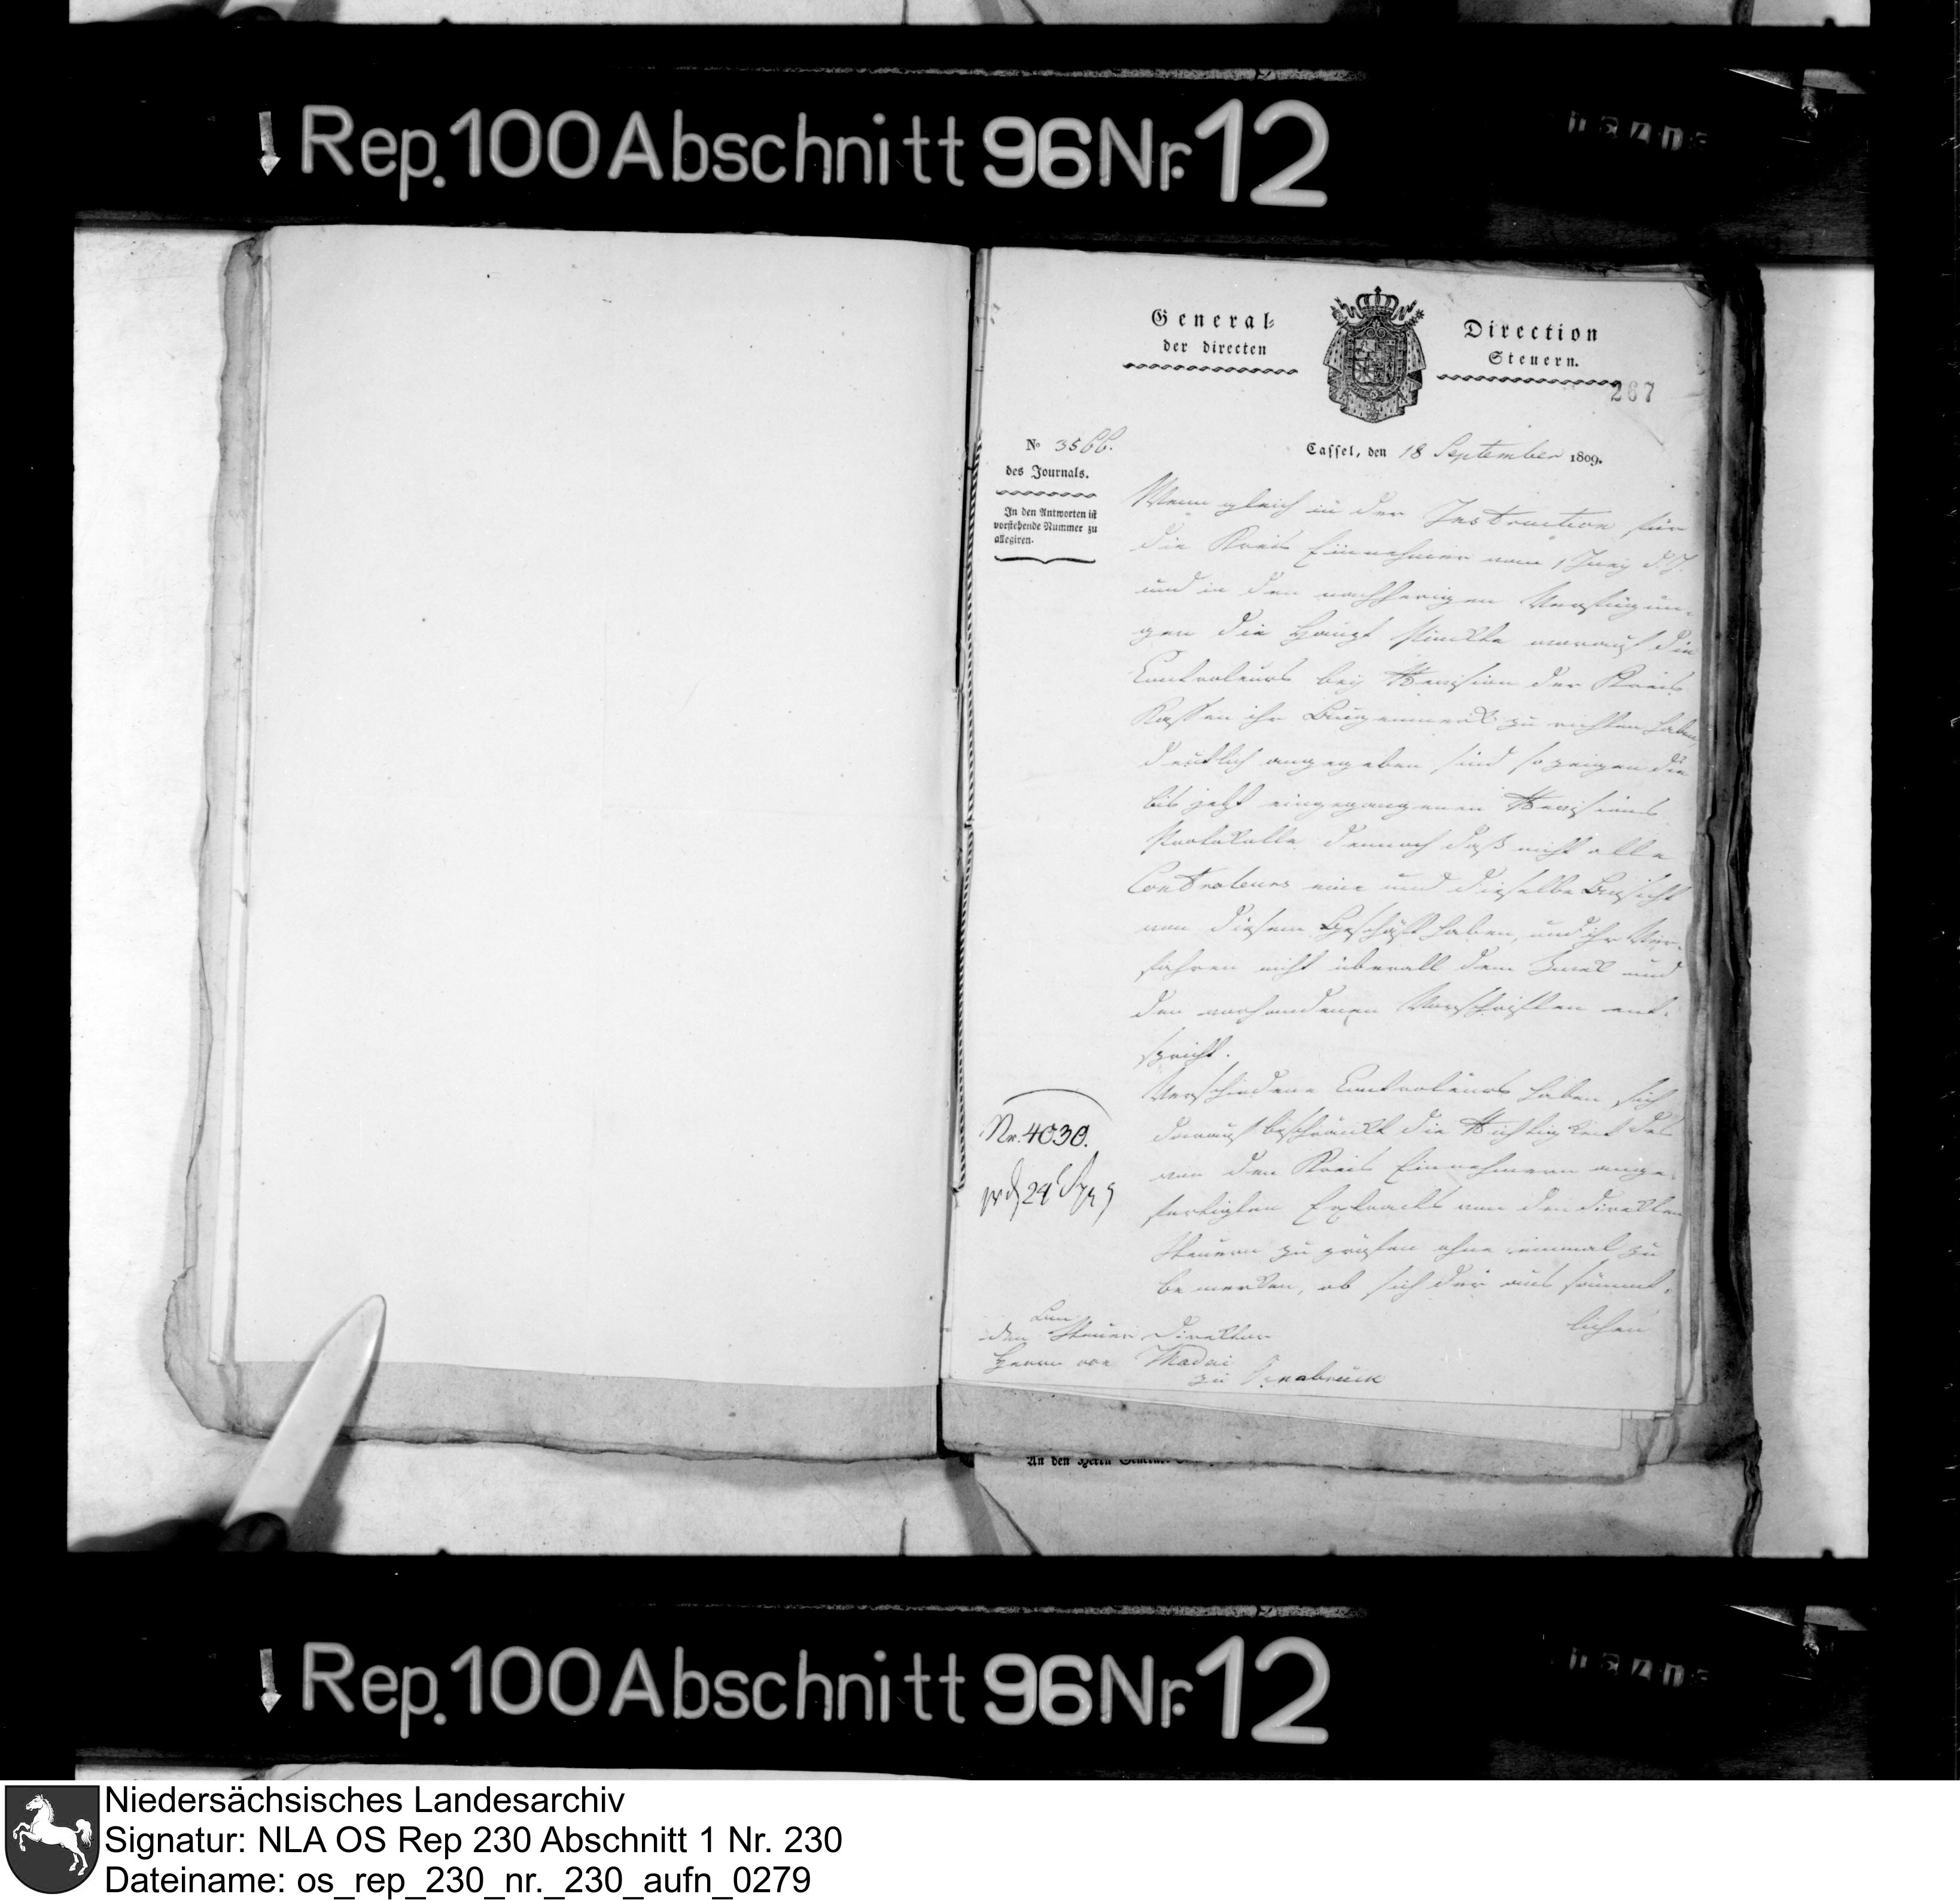 Rep. 100 Abschnitt 96 Nr. 12
General-
der directen
Direction
Steuern.
267
No 3566.
des Journals.
In den Antworten ist
vorstehende Nummer zu
allegiren.
Cassel, den 18 September 1809.
Wenn gleich in der Instruction für
die Kreis Einnehmer vom 1 Juny d. J.
und in den nachherigen Verfügun-
gen die Haupt Punkte worauf die
Controleurs bey Revision der Kreis
Kassen ihr Augenmerk zu richten haben,
deutlich angegeben sind so zeigen die
bis jetzt eingegangenen Revisions
Protokolle dennoch daß nicht alle
Controleurs eine und dieselbe Ansicht
von diesem Geschäft haben, und ihr Ver-
fahren nicht überall dem Zweck und
den vorhandenen Vorschriften ent-
spricht.
Verschiedene Controleurs haben sich
darauf beschränkt die Richtigkeit des
von den Kreis Einnehmern ange-
fertigten Extracts von den direkten
Steuern zu prüfen ohne einmal zu
bemerken, ob sich der aus sämmt-
lichen
Nr. 4030.
24
An
den Steuer Direktor
Herrn von Madai
zu Osnabrück
An den Herrn
Rep. 100 Abschnitt 96 Nr. 12
Niedersächsisches Landesarchiv
Signatur: NLA OS Rep 230 Abschnitt 1 Nr. 230
Dateiname: os_rep_230_nr._230_aufn_0279